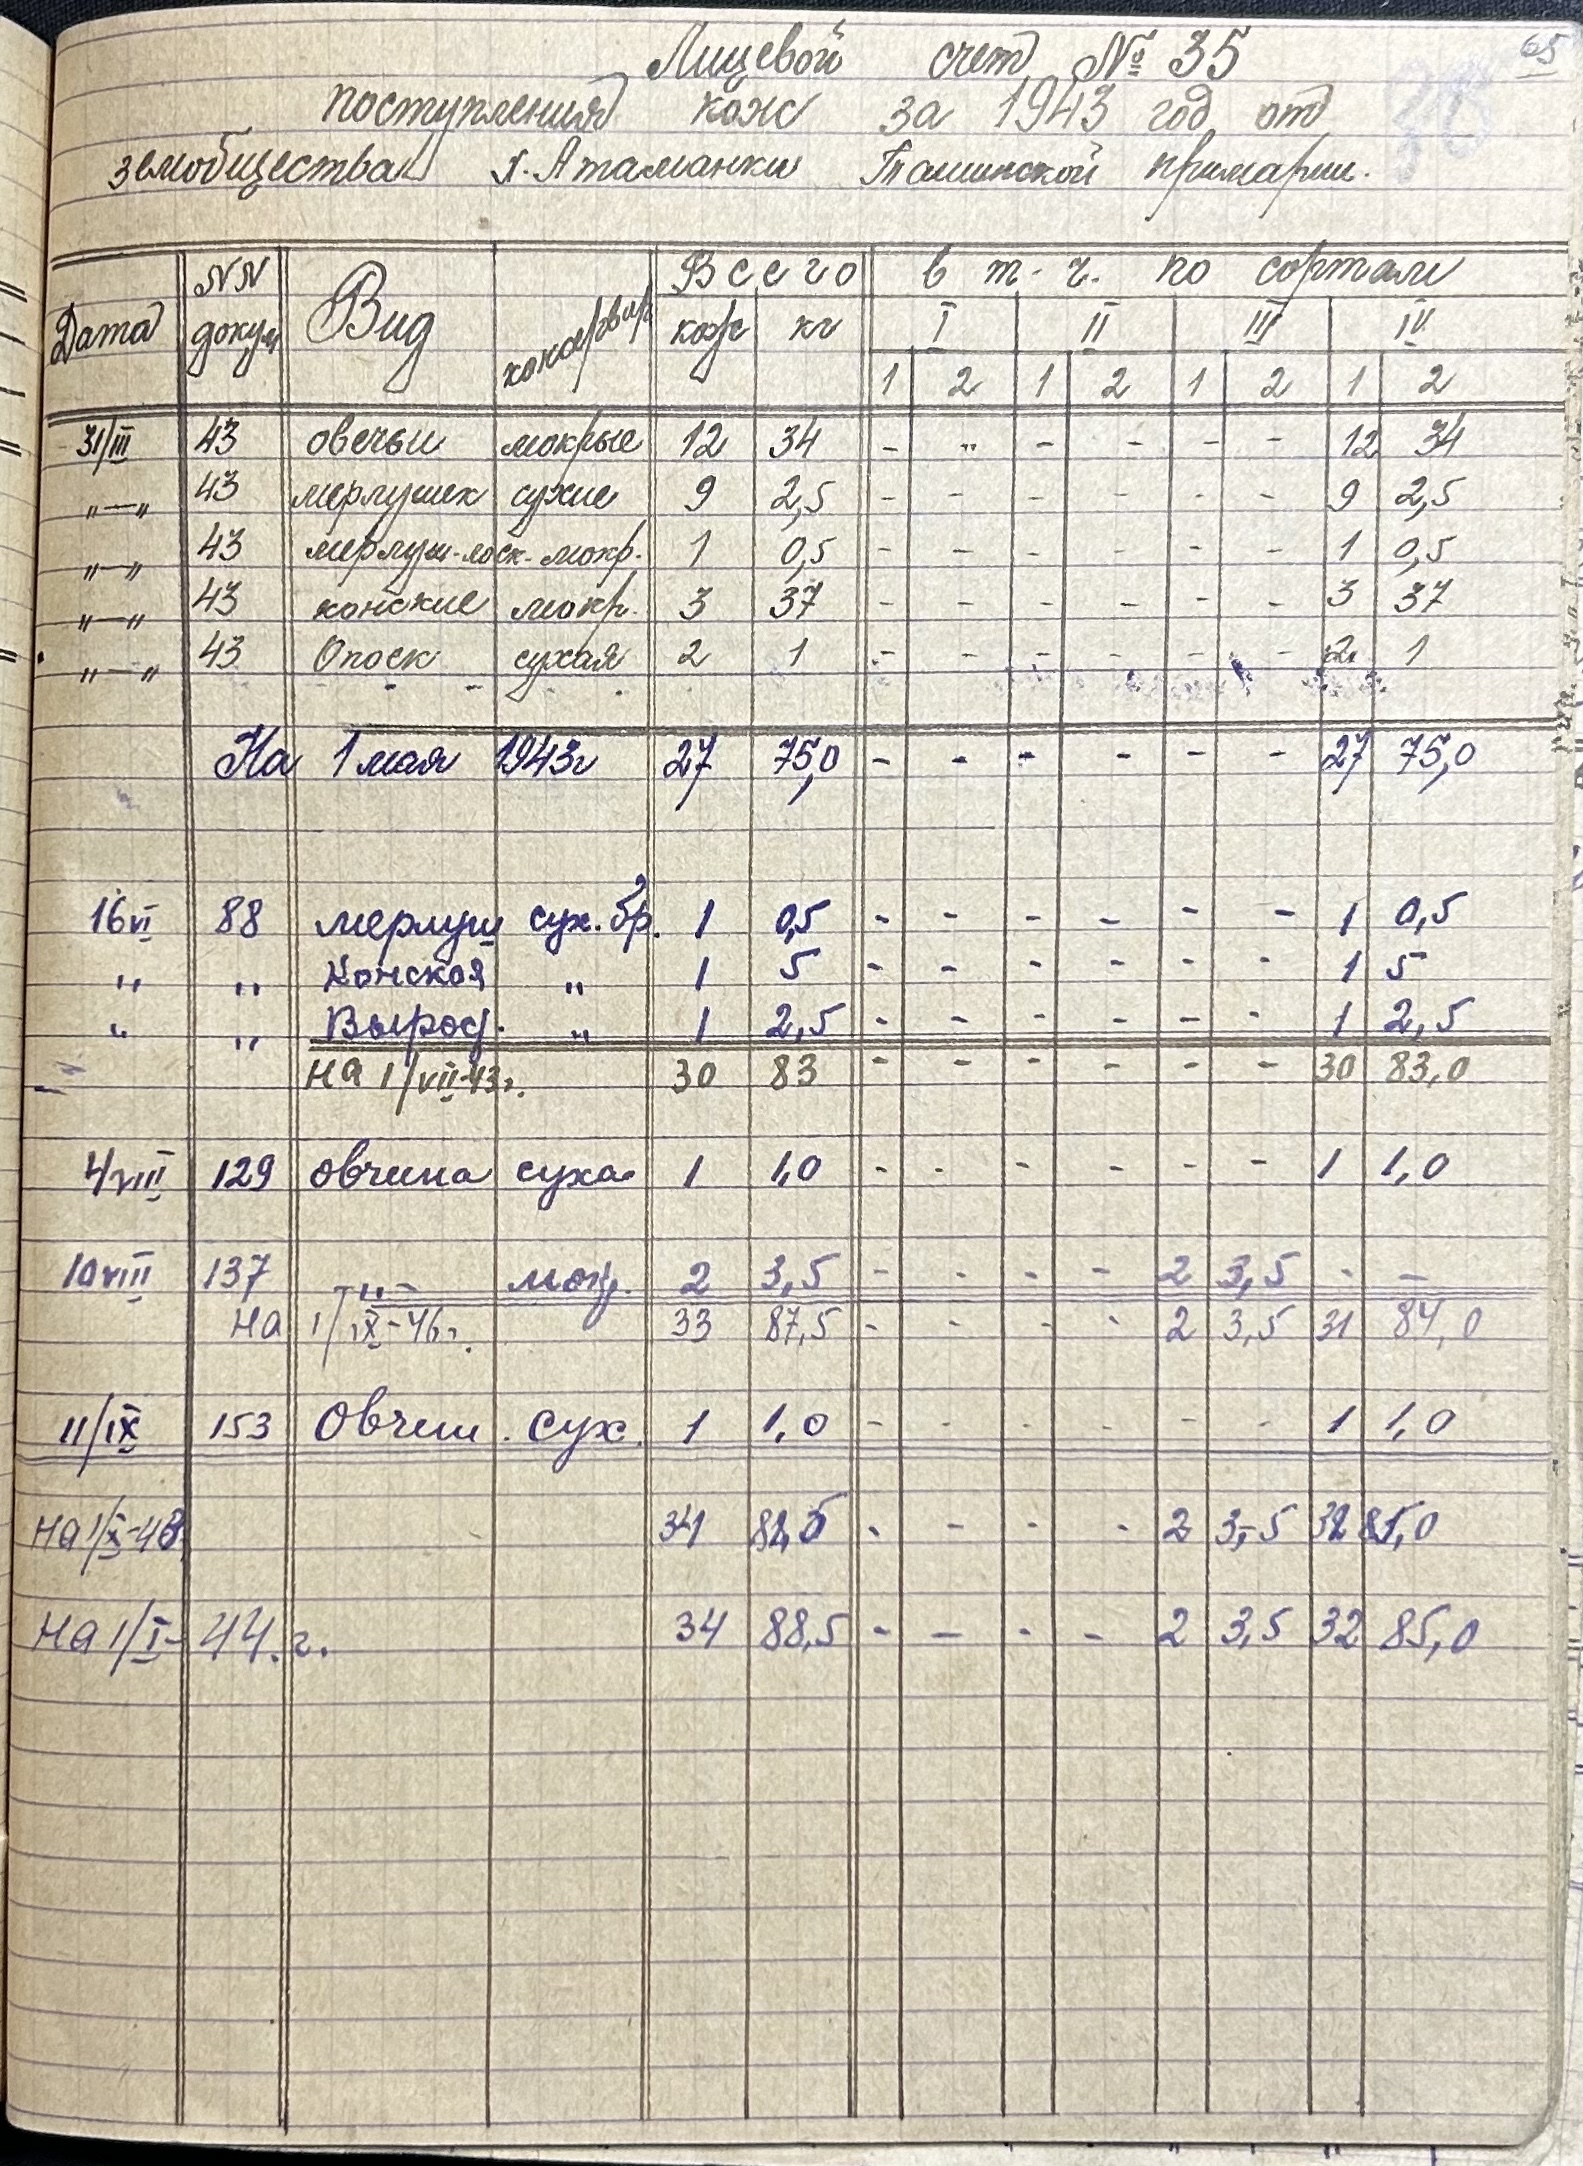 65
Лицевой счет № 35
поступления кож за 1943 год от
земобщества х. Атаманки Ташинской примарии.
Дата NN докум Вид консервир Всего в т. ч. по сортам
кож кг I II III IV
1 2 1 2 1 2 1 2
31/III 43 овечьи мокрые 12 34 - " - - - - 12 34
"—" 43 мерлушек сухие 9 2,5 - - - - - - 9 2,5
"—" 43 мерлуш-лоск-мокр. 1 0,5 - - - - - - 1 0,5
"—" 43 конские мокр. 3 37 - - - - - - 3 37
"—" 43 Опоек сухая 2 1 - - - - - - 2 1
На 1 мая 1943г 27 75,0 - - - - - - 27 75,0
16 VI 88 мерлуш сух. бр. 1 0,5 - - - - - - 1 0,5
" " Конская " 1 5 - - - - - - 1 5
" " Вырос. " 1 2,5 - - - - - - 1 2,5
на 1/VII-43г. 30 83 - - - - - - 30 83,0
4/VIII 129 овчина суха 1 1,0 - - - - - - 1 1,0
10 VIII 137 -"- мок. 2 3,5 - - - - 2 3,5 - -
на 1/IX-4 г. 33 87,5 - - - - 2 3,5 31 84,0
11/IX 153 Овчин. сух. 1 1,0 - - - - - - 1 1,0
на 1/X-43 34 - - - - 2 3,5 32 85,0
на 1/I-44.г. 34 88,5 - - - - 2 3,5 32 85,0